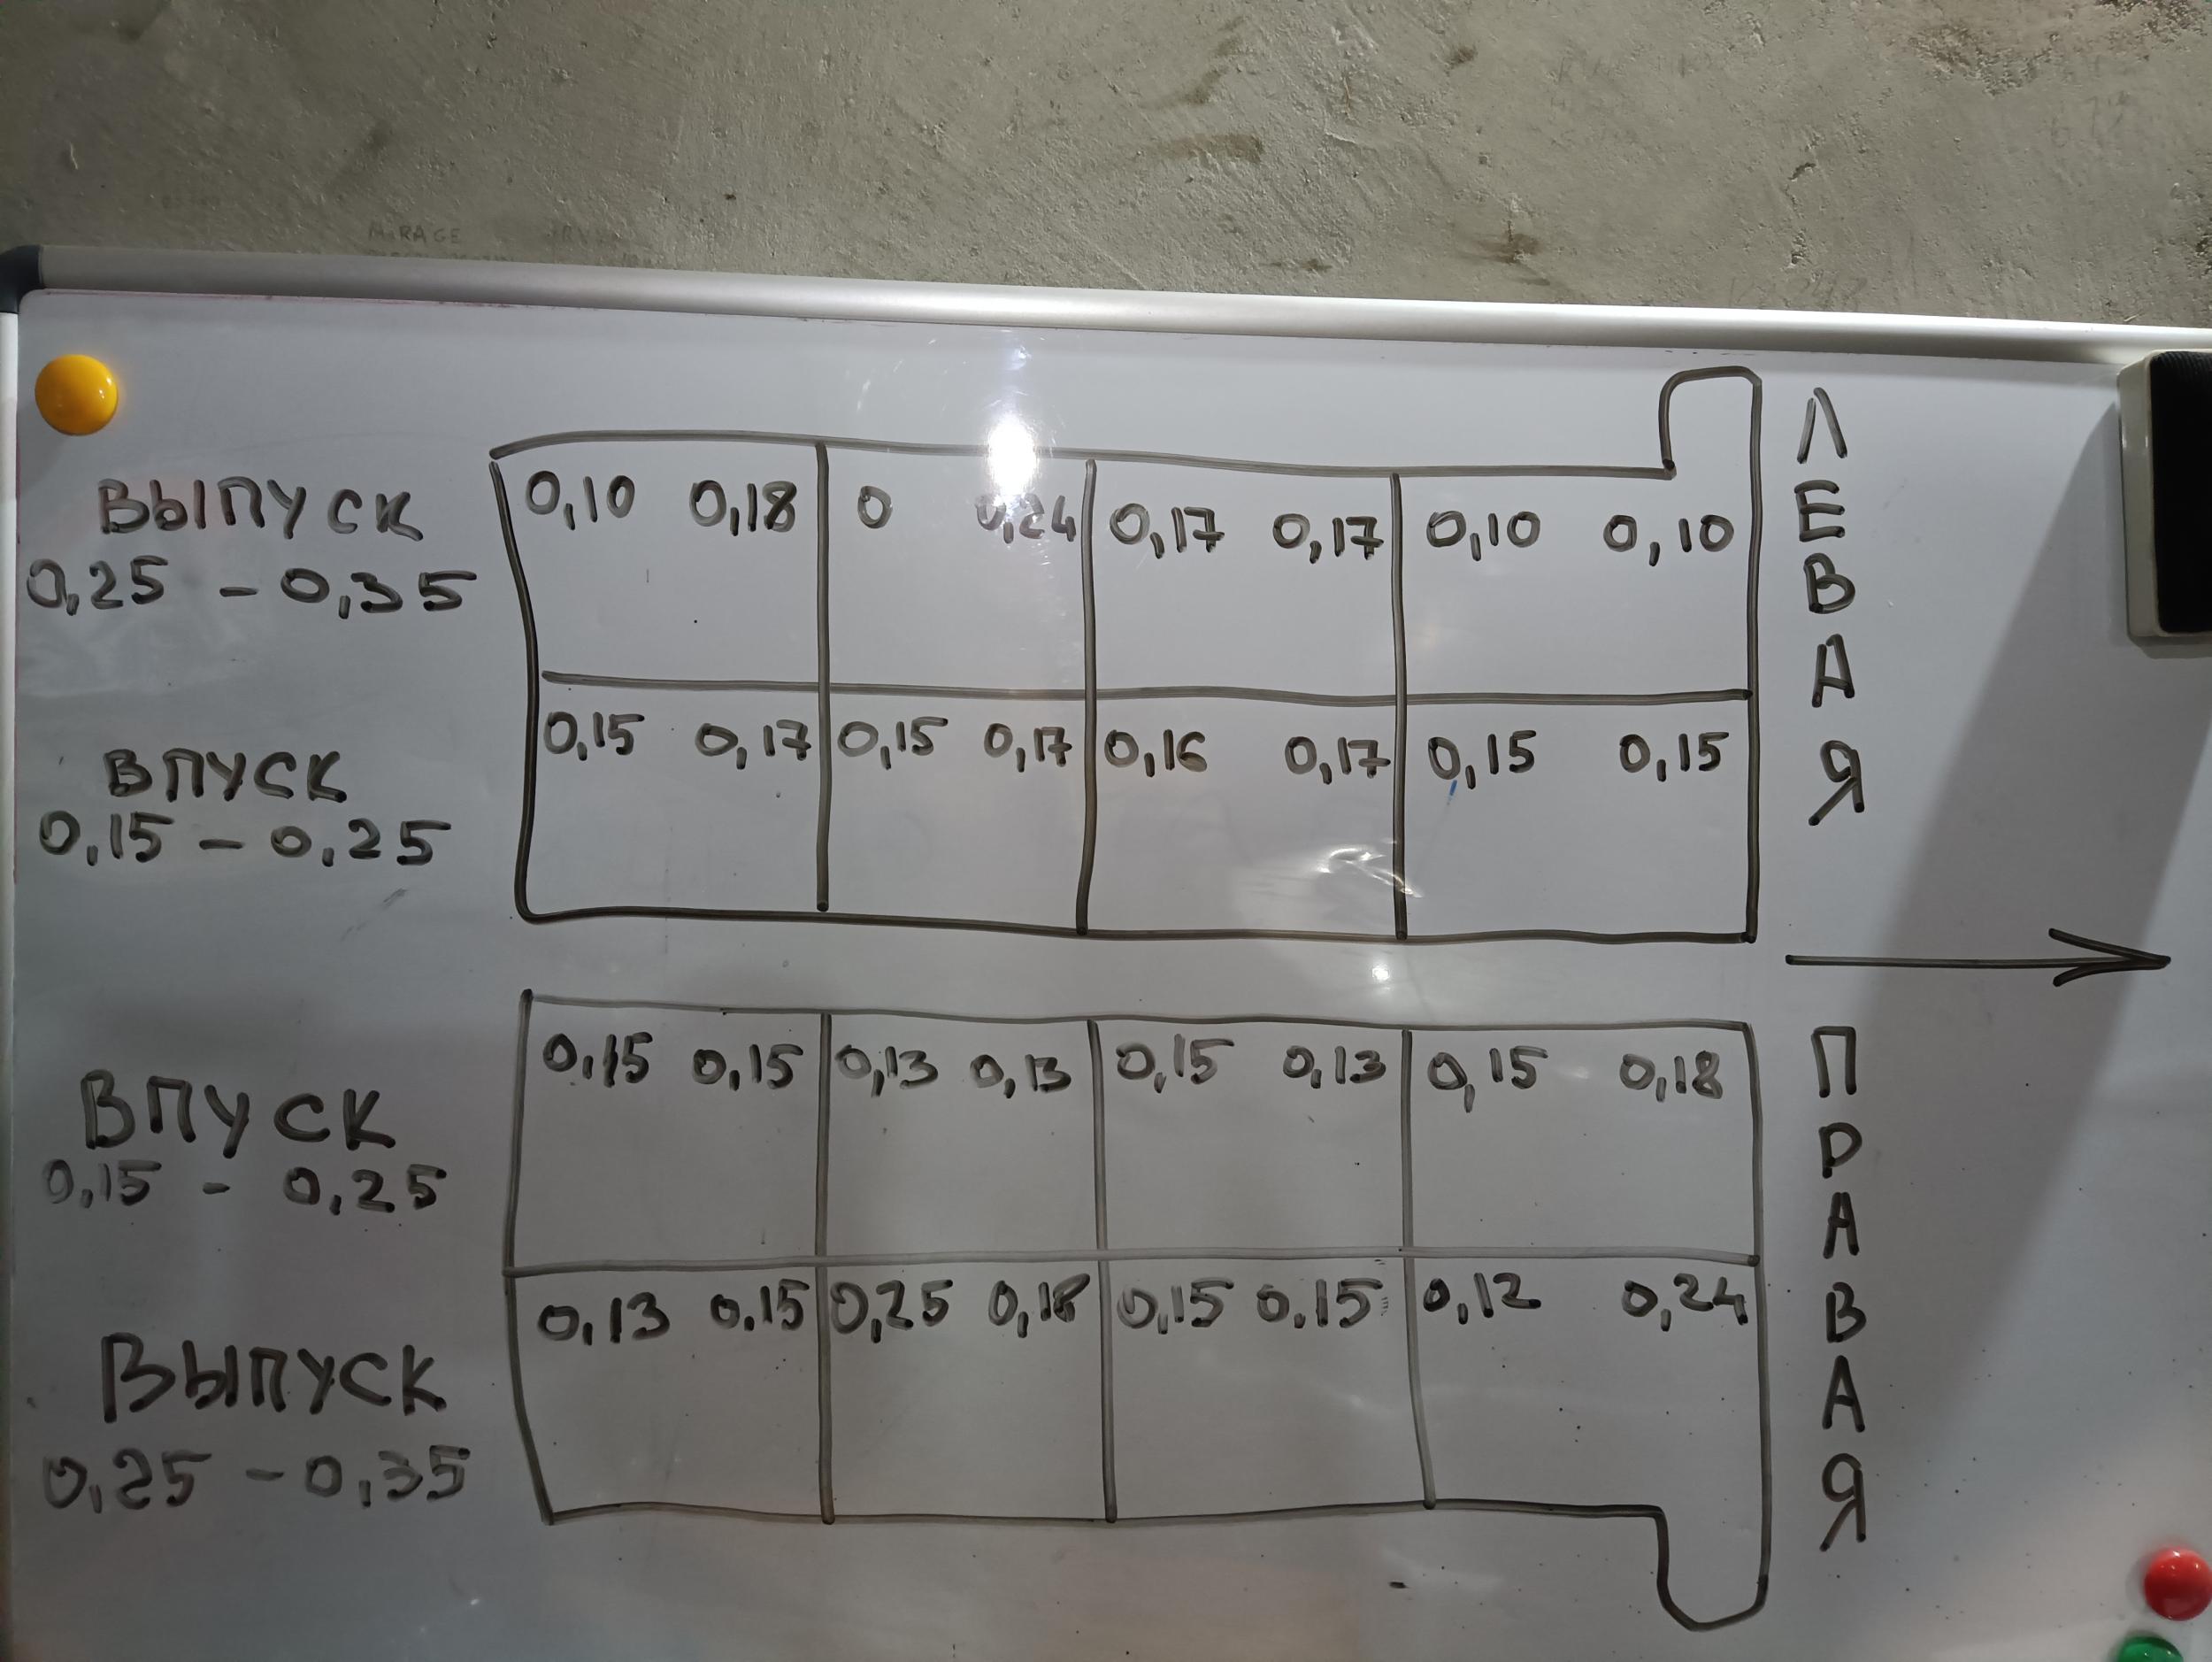 MIRAGE
ВЫПУСК
0,25 - 0,35
0,10 0,18 0 0,24 0,17 0,17 0,10 0,10
ВПУСК
0,15 - 0,25
0,15 0,17 0,15 0,17 0,16 0,17 0,15 0,15
ЛЕВАЯ
ВПУСК
0,15 - 0,25
0,15 0,15 0,13 0,13 0,15 0,13 0,15 0,18
ВЫПУСК
0,25 - 0,35
0,13 0.15 0,25 0,18 0,15 0.15 0,12 0,24
ПРАВАЯ